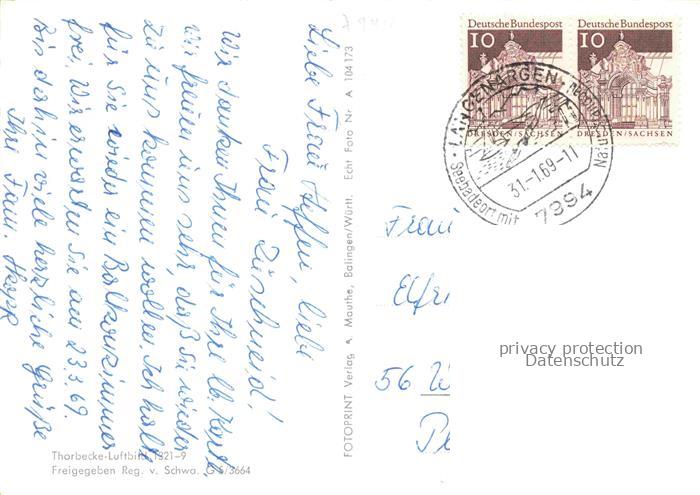 Liebe Frau Heffen, liebe
Frau Zuschneid!
Wir danken Ihnen für Ihre lb. Karte.
Wir freuen uns sehr, daß Sie wieder
zu uns kommen wollen. Ich halte
für Sie wieder ein Balkonzimmer
frei. Wir erwarten Sie am 23.3.69.
Bis dahin viele herzliche Grüße
Ihre Fam.
Thorbecke-Luftbild 1321-9
Freigegeben Reg. v. Schwa. G 5/3664
FOTOPRINT Verlag A. Mauthe, Balingen/Württ. Echt Foto Nr. A 104173
Deutsche Bundespost
10
DRESDEN/SACHSEN
Deutsche Bundespost
10
DRESDEN/SACHSEN
LANGENARGEN
Seebadeort mit
31.-1.69-11
7994
Frau
Elfri
56
privacy protection
Datenschutz